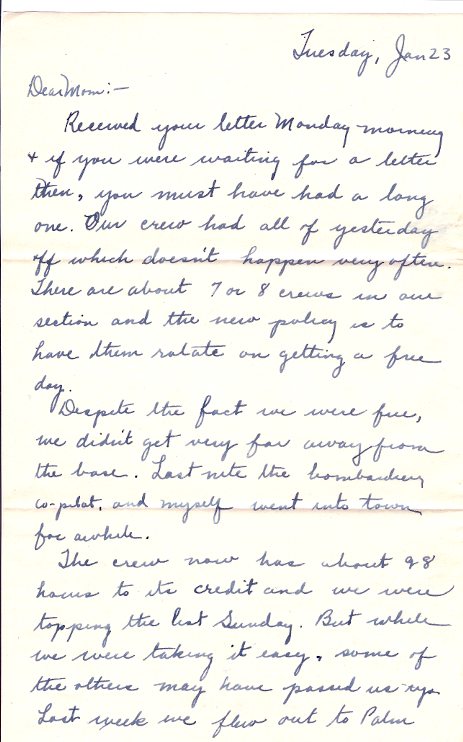 Tuesday, Jan 23
Dear Mom:—
Received your letter Monday morning
+ if you were waiting for a letter
then, you must have had a long
one. Our crew had all of yesterday
off which doesn't happen very often.
There are about 7 or 8 crews in our
section and the new policy is to
have them rotate on getting a free
day.
Despite the fact we were free,
we didn't get very far away from
the base. Last nite the bombardier,
co-pilot, and myself went into town
for awhile.
The crew now has about 98
hours to its credit and we were
topping the list Sunday. But while
we were taking it easy, some of
the others may have passed us up.
Last week we flew out to Palm